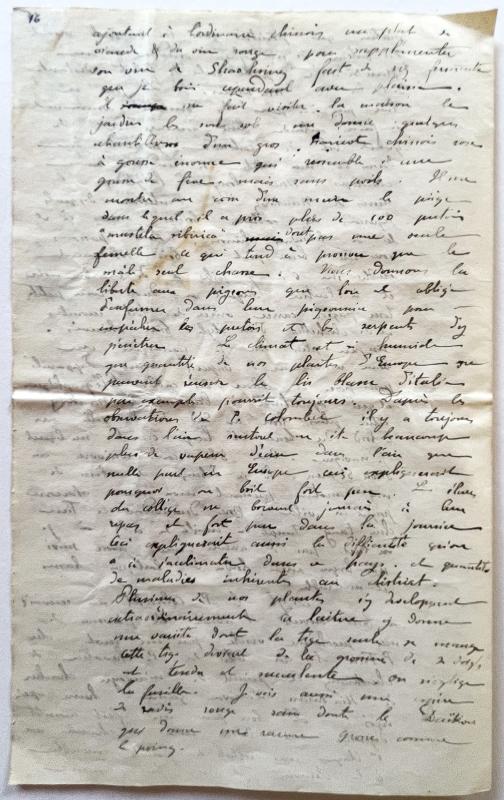 16
ajoutant à l'ordinaire chinois un plat de
viande & du vin rouge pour supplémenter
son vin de Shaohsing fait de riz fermenté
que je bois cependant avec plaisir.
Il me fait visiter la maison le
jardin me donne quelques
d'un gros haricot chinois rose
à gousse énorme qui ressemble à une
graine de fève mais sans poils. Il me
montre au coin d'un mur le piège
dans lequel il a pris plus de 100 putois
"mustela sibirica" dont pas une seule
femelle ce qui tend à prouver que le
mâle seul chasse. Nous donnons la
liberté aux pigeons que l'on est obligé
d'enfermer dans leur pigeonnier pour
empêcher les putois et les serpents d'y
pénétrer. Le climat est si humide
que quantité de nos plantes d'Europe ne
peuvent réussir le lis blanc d'Italie
par exemple pourrit toujours. D'après les
observations du P. colombel il y a toujours
dans l'air surtout en été beaucoup
plus de vapeur d'eau dans l'air que
nulle part en Europe ceci expliquerait
pourquoi on boit fort peu. Les élèves
du collège ne boivent jamais à leur
repas et fort peu dans la journée
ceci expliquerait aussi la difficulté qu'on
a à s'acclimater dans ce pays et quantité
de maladies inhérentes au district.
Plusieurs de nos plantes s'y développent
extraordinairement la laitue y donne
une variété dont la tige seule se mange
cette tige devient de la grosseur de 2 doigts
et tendre et succulente on néglige
la feuille. Je vois aussi une espèce
de radis rouge sain doute le Daikon
qui donne une racine grosse comme
le poing.